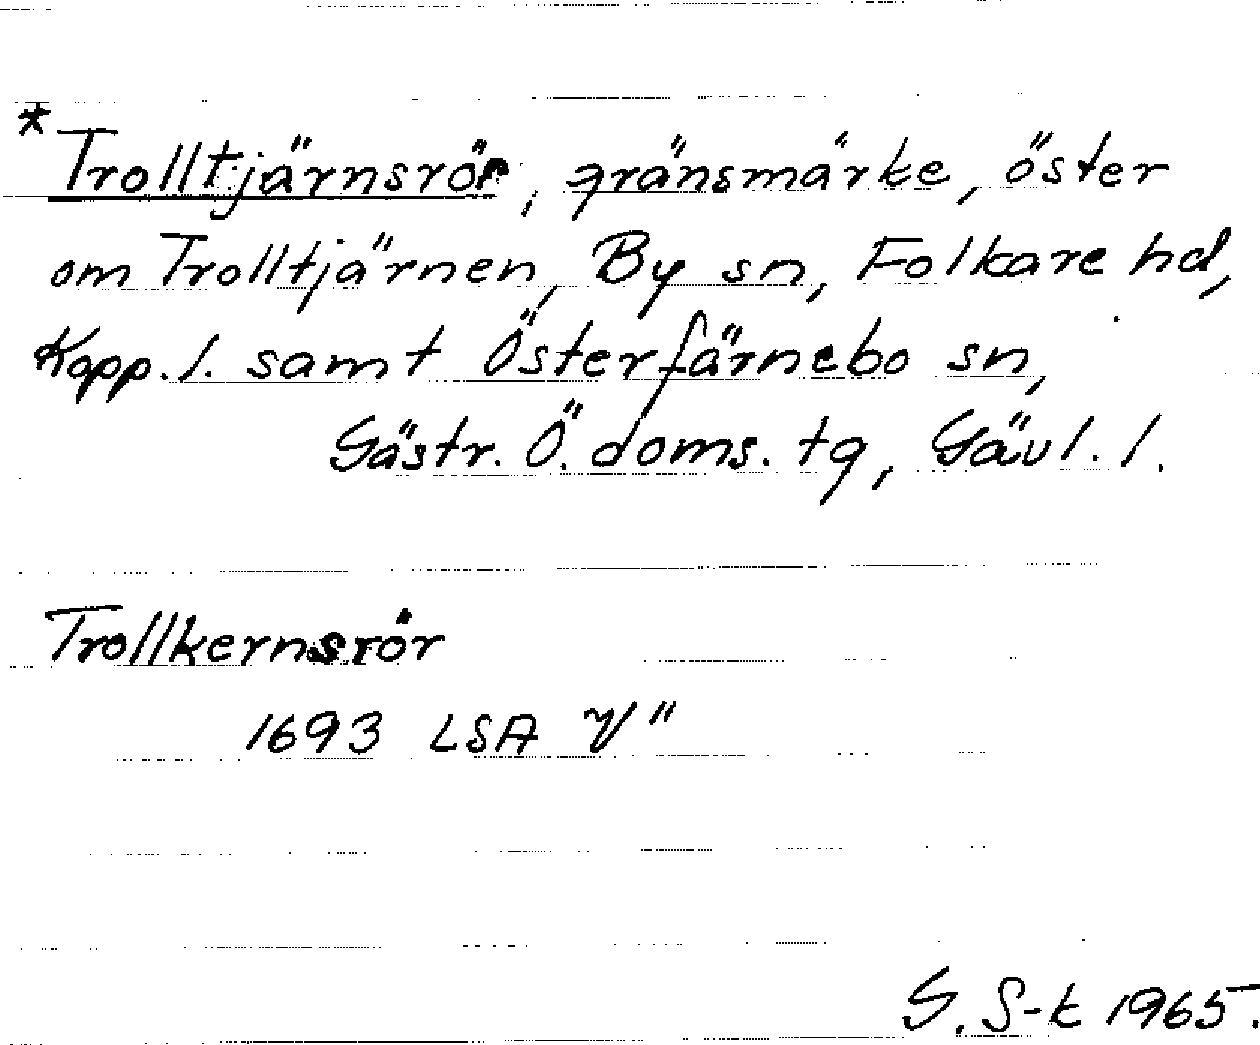 *Trolltjärnsrör, gränsmärke, öster
om Trolltjärnen, By sn, Folkare hd,
Kopp. l. samt Österfärnebo sn,
Gästr. Ö. doms. tg, Gävl. l.
Trollkernsrör
1693 LSA V"
G. S-k 1965.